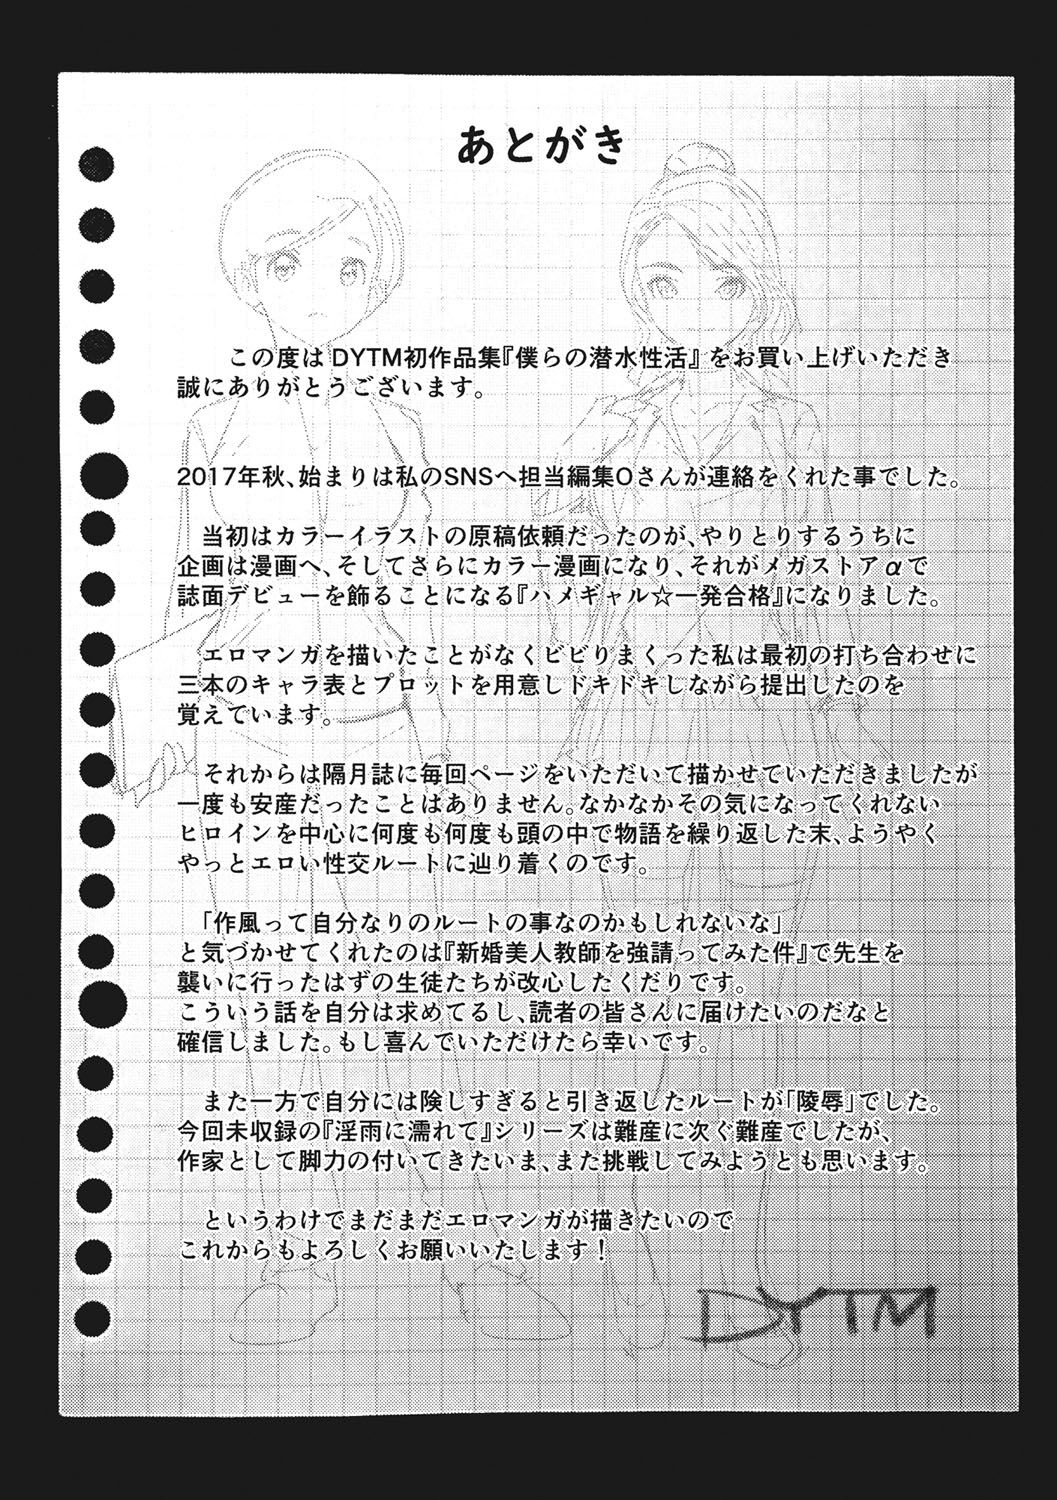 あとがき
この度は DYTM初作品集『僕らの潜水性活』をお買い上げいただき
誠にありがとうございます。
2017年秋、始まりは私のSNSへ担当編集Oさんが連絡をくれた事でした。
当初はカラーイラストの原稿依頼だったのが、やりとりするうちに
企画は漫画へ、そしてさらにカラー漫画になり、それがメガストアαで
誌面デビューを飾ることになる『ハメギャル☆一発合格』になりました。
エロマンガを描いたことがなくビビりまくった私は最初の打ち合わせに
三本のキャラ表とプロットを用意しドキドキしながら提出したのを
覚えています。
それからは隔月誌に毎回ページをいただいて描かせていただきましたが
一度も安産だったことはありません。なかなかその気になってくれない
ヒロインを中心に何度も何度も頭の中で物語を繰り返した末、ようやく
やっとエロい性交ルートに辿り着くのです。
「作風って自分なりのルートの事なのかもしれないな」
と気づかせてくれたのは『新婚美人教師を強請ってみた件』で先生を
襲いに行ったはずの生徒たちが改心したくだりです。
こういう話を自分は求めてるし、読者の皆さんに届けたいのだなと
確信しました。もし喜んでいただけたら幸いです。
また一方で自分には険しすぎると引き返したルートが「陵辱」でした。
今回未収録の『淫雨に濡れて』シリーズは難産に次ぐ難産でしたが、
作家として脚力の付いてきたいま、また挑戦してみようとも思います。
というわけでまだまだエロマンガが描きたいので
これからもよろしくお願いいたします！
DYTM